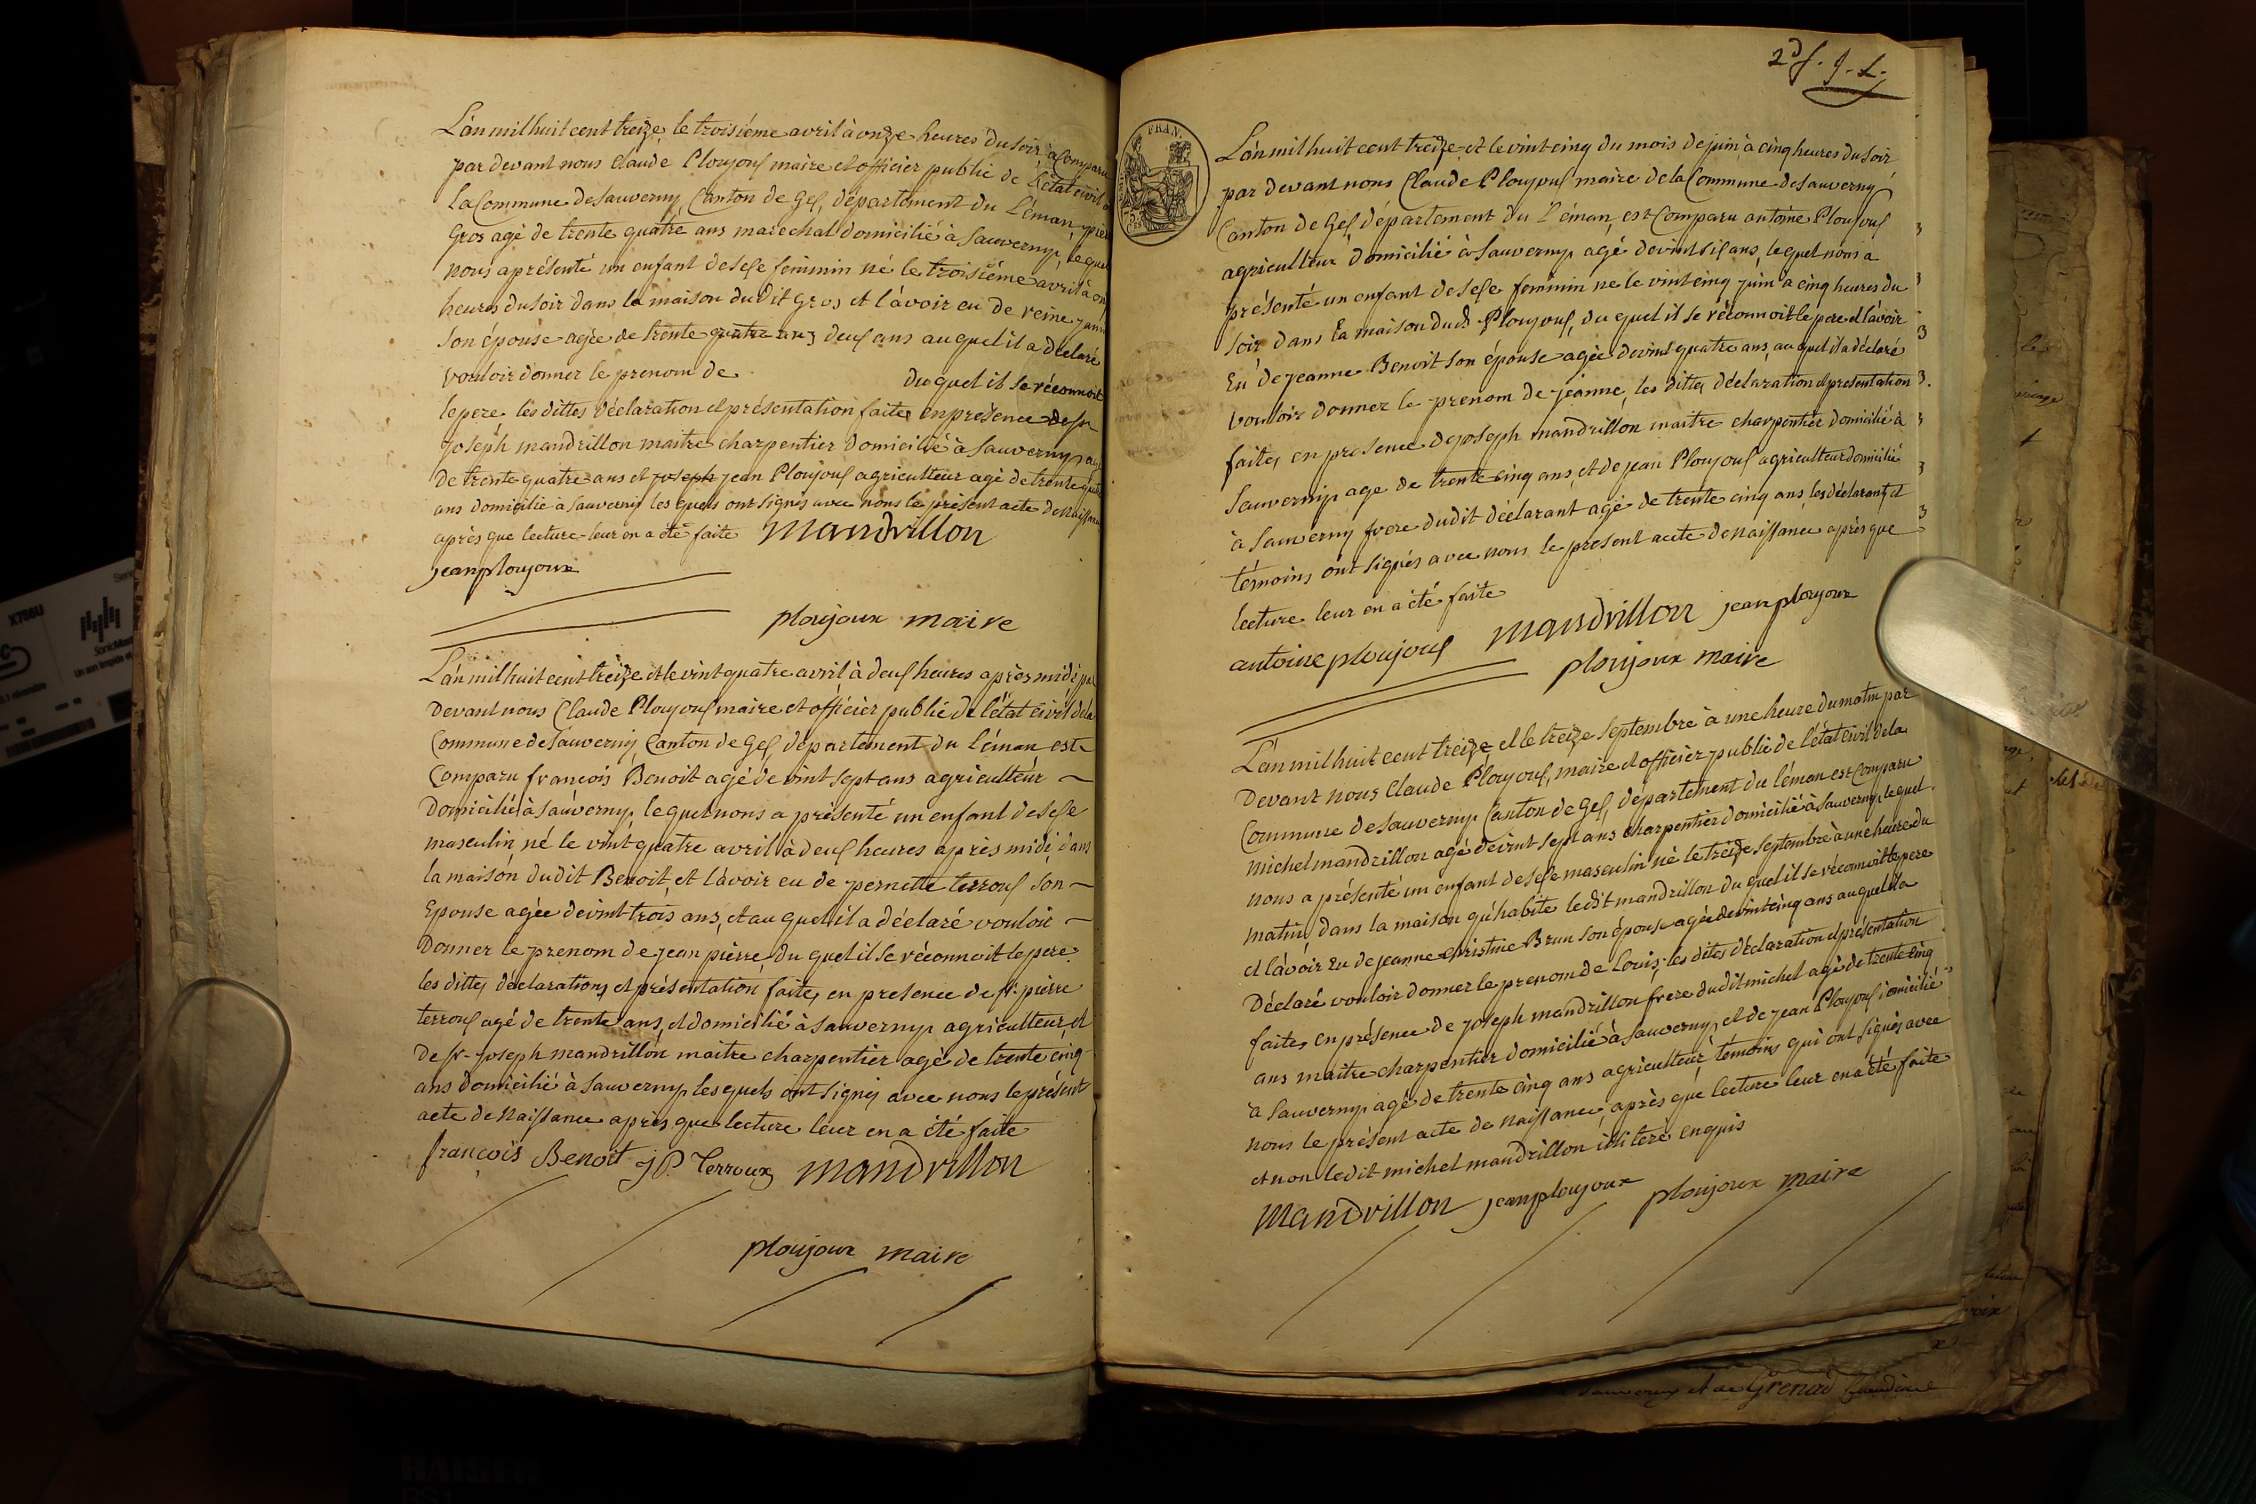 L'an mil huit cent treize, le troisiéme avril à onze heures du soir, a Comparu
par devant nous Claude Ploujouſ maire et officier public de l'état civil
la Commune de Sauverny Canton de Geſ, département du Léman,
Gros agé de trente quatre ans marechal domicilié à Sauverny, lequel
nous aprésenté un enfant de seſe feminin né le troisiéme avril à on
heures du soir dans la maison dudit Gros et l'avoir eu de reine
son épouse agée de trente quatre ans deuſ ans auquel il a déclaré
vouloir donner le prenom de duquel il se réconnoit
le pere les dittes déclaration et présentation faites en présence de sr
joseph mandrillon maitre charpentier domicilié à Sauverny, ag
de trente quatre ans et joseph jean Ploujouſ agriculteur agé de trente quat
ans domicilié à Sauverny les quels ont signés avec nous le présent acte de Naissance
après que lecture leur en a été faite mandrillon
jean ploujoux
ploujoux maire
L'an mil huit cent treize et le vint quatre avril à deuſ heures après midi par
devant nous Claude Ploujouſ maire et officier public de l'état civil de la
Commune de Sauverny Canton de Geſ, département du Léman est
Comparu françois Benoit agé de vint sept ans agriculteur
domicilié à Sauverny, le quel nous a présenté un enfant de seſe
masculin né le vint quatre avril à deuſ heures après midi, dans
la maison dudit Benoit, et l'avoir eu de pernette terrouſ son
Epouse agée de vint trois ans, et au quel il a déclaré vouloir
Donner le prenom de jean pierre du quel il se réconnoit le pere.
les dittes déclarations et présentation faites en presence de sr pierre
terrouſ agé de trente ans, et domicilié à Sauverny agriculteur, et
de sr joseph mandrillon maitre charpentier agé de trente cinq
ans domicilié à Sauverny les quels ont signés avec nous le présent
acte de Naissance après que lecture leur en a été faite
françois Benoit J P. Terroux mandrillon
ploujoux maire
2d f. J. L.
FRAN.
L'an mil huit cent treize et le vint cinq du mois de juin à cinq heures du soir
par devant nous Claude Ploujouſ maire de la Commune de Sauverny
Canton de Geſ, département du Léman, est Comparu antoine Ploujouſ
agriculteur domicilié à Sauverny agé de vint siſ ans, le quel nous a
présenté un enfant de seſe feminin né le vint cinq juin à cinq heures du
soir dans la maison dudt Ploujouſ, du quel il se réconnoit le pere et l'avoir
Eu de jeanne Benoit son épouse agée de vint quatre ans, au quel il a déclaré
vouloir donner le prenom de jeanne, les dittes déclaration et presentation
faites en presence de joseph mandrillon maitre charpentier domicilié à
Sauverny age de trente cinq ans, et de jean Ploujouſ agriculteur domicilié
à Sauverny frere dudit déclarant agé de trente cinq ans les déclarant et
témoins ont signés avec nous le présent acte de Naissance après que
lecture leur en a été faite
antoine ploujouſ mandrillon jean ploujoux
ploujoux maire
L'an mil huit cent treize et le treize septembre à une heure du matin par
devant nous Claude Ploujouſ, maire et officier public de l'état civil de la
Commune de Sauverny Canton de Geſ, département du Léman est Comparu
michel mandrillon agé de vint sept ans charpentier domicilié à Sauverny, le quel
nous a présenté un enfant de seſe masculin né le treize septembre à une heure du
matin, dans la maison qu'habite ledit mandrillon du quel il se réconnoit le pere
et l'avoir Eu de jeanne christine Brun son épouse agée de vint cinq ans auquel il a
Déclaré vouloir donner le prenom de Louis, les dites déclaration et présentation
faites en présence de joseph mandrillon frere dudit michel agé de trente cinq
ans maitre charpentier domicilié à Sauverny, et de jean Ploujouſ domicilié
à Sauverny agé de trente cinq ans agriculteur, témoins qui ont signés avec
nous le présent acte de naissance, après que lecture leur en a été faite
et non ledit michel mandrillon illiteré enquis
mandrillon jean ploujoux ploujoux maire